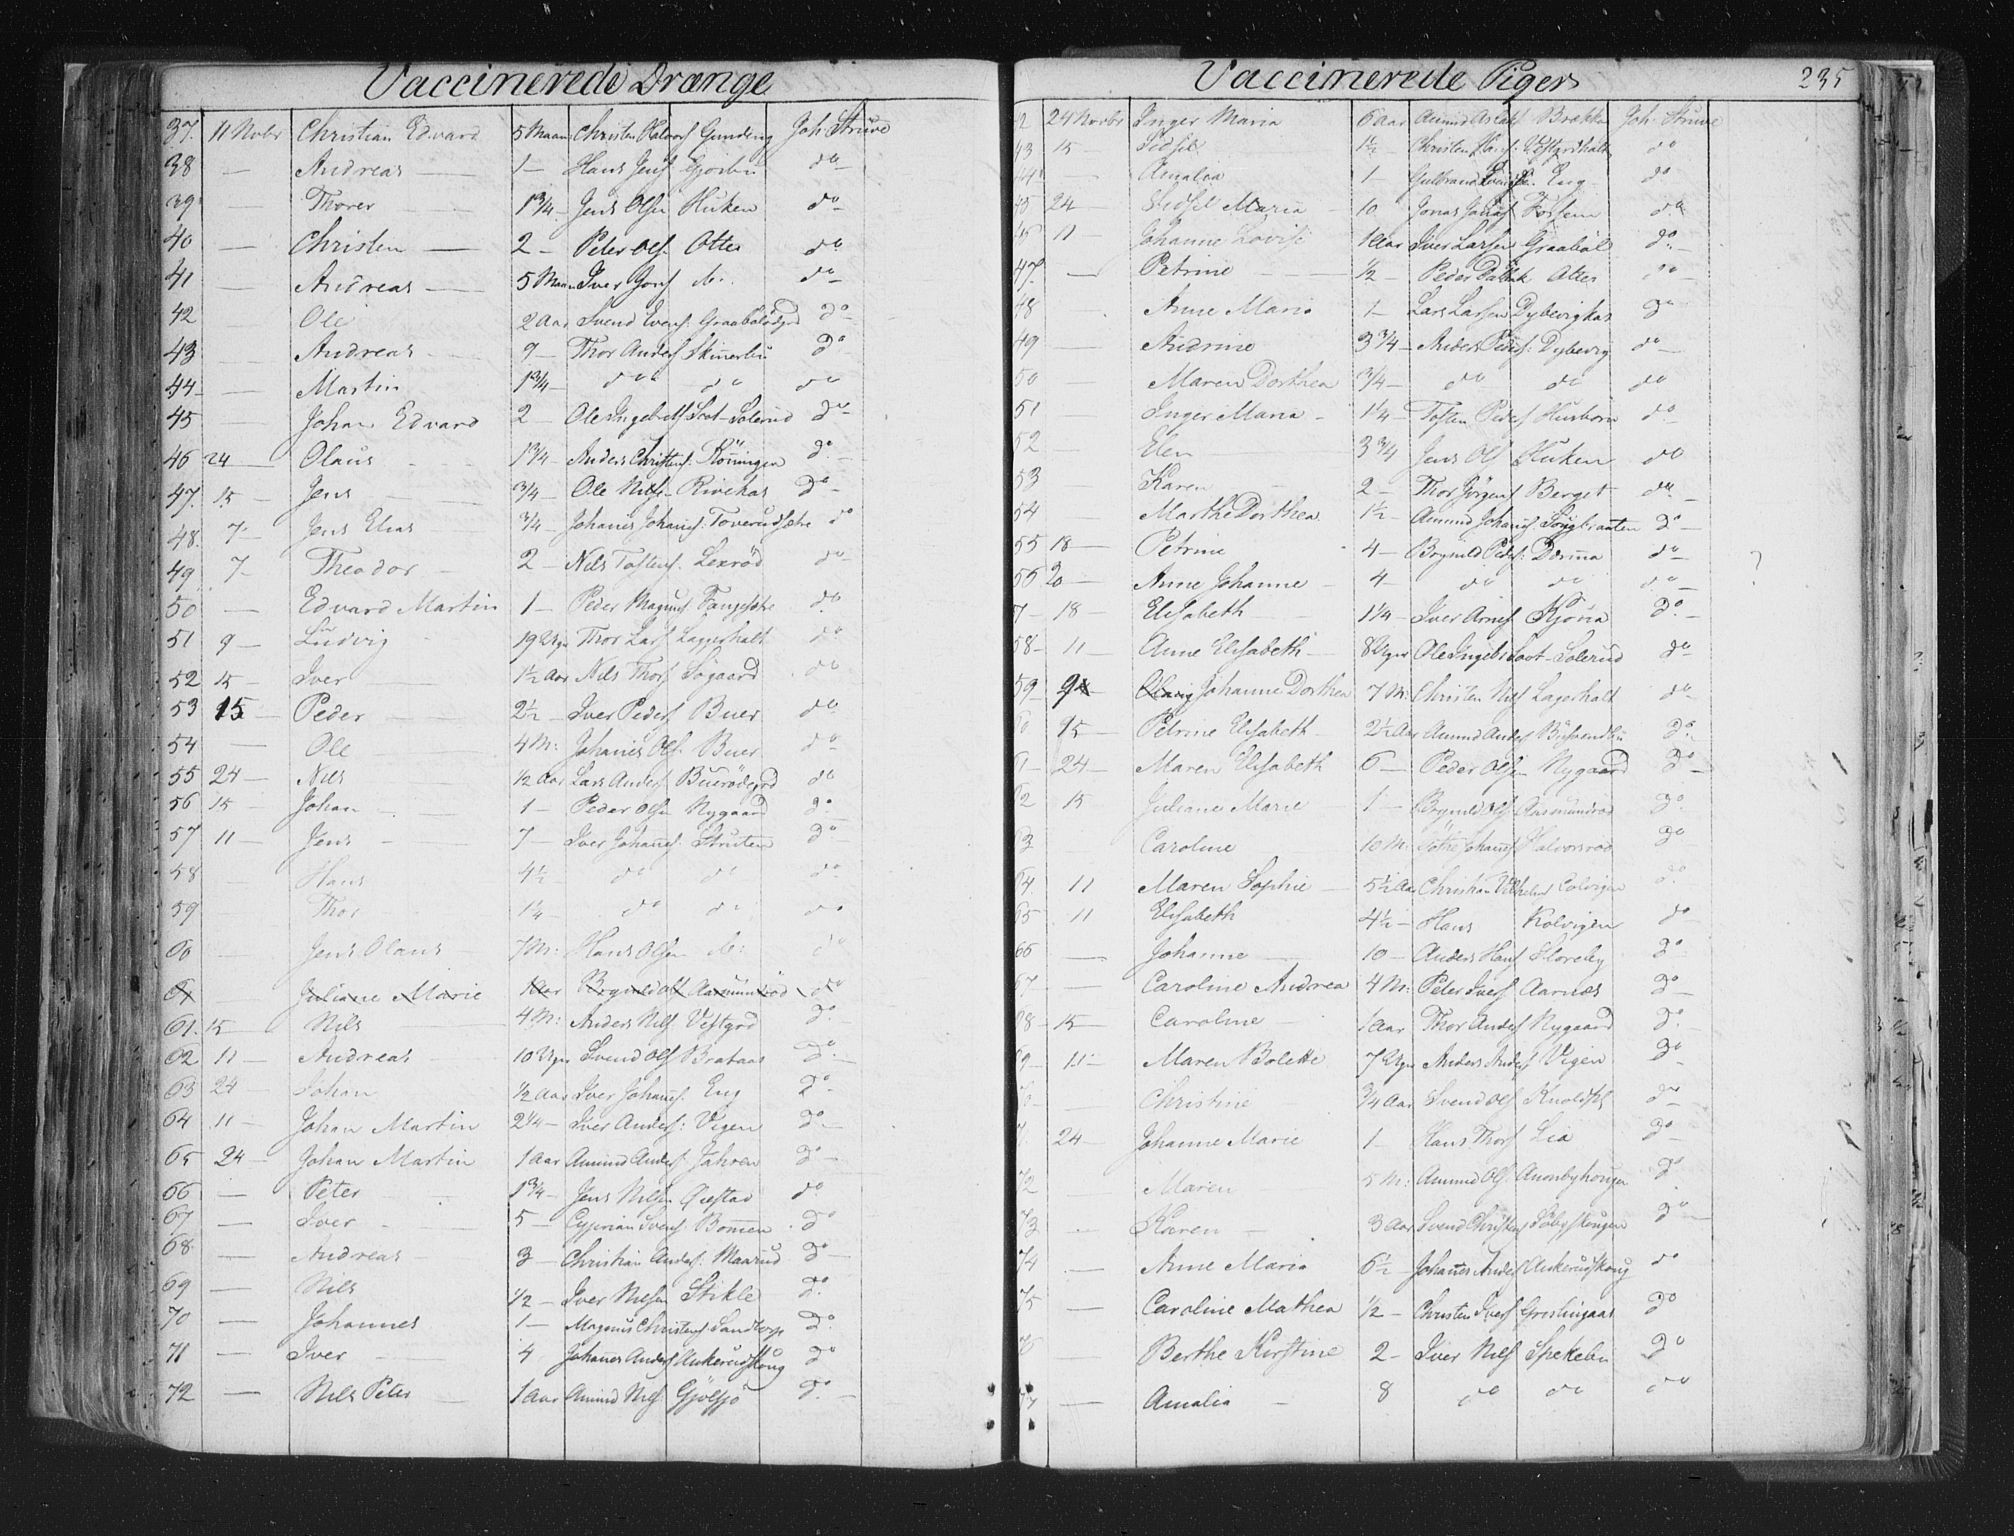 Vaccinerede Drænge
37. 11 Novbr Christian Edvard 5 Maan: Christen Halvors Gundeng Joh. Struve
38 — Andreas 1 — Hans Jens Gjerbu do
39 — Thorer 1¾ — Jens Olsen Huken do
40 — Christen 2 — Peter Ols. Otter do
41 — Andreas 5 Maan Iver Jons do
42 — Ole 2 Aar Svend Evens. Graabølødgrd do
43 — Andreas 9 — Thor Anders Skinerbu do
44 — Martin 1¾ — do do do
45 Johan Edvard 2 — Ole Ingebrets Soot-Solerud do
46 24 — Olaus 1¾ — Anders Christens. Rönningen do
47. 15 — Jens ¾ — Ole Nils. Rivekas do
48. 7 — Jens Elias ¾ — Johanes Johanes. Toverud do
49 7 — Theodor 2 — Nils Tostens. Lexröd do
50 — Edvard Martin 1 — Peder Magnus do
51 9 — Ludvig 19 Uger Thor Lars Lagerholt do
52 15 — Iver 1½ Aar Nils Thors Søgaard do
53 15 — Peder 2½ — Iver Peders Buer do
54 — Ole 4 M: Johanes Ols. Buer do
55 24 — Nils ½ Aar Lars Anders Buerødegrd do
56 15 — Johan 1 — Peder Olsen Nygaard do
57 11 — Jens 7 — Iver Johanes. Struten do
58 — Hans 4½ — do do do
59 Thor 1¼ — do do do
60 Jens Olaus 7 M: Hans Olsen do
61 Juliane Marie 1 Aar Brynild Ols Aasmundrød do
61. 15 — Nils 4 M: Anders Nils. Vestgrd do
62 11 — Andreas 10 Uger Svend Ols Brataas do
63 24 Johan ½ Aar Iver Johanes. Eng do
64 11 — Johan Martin 2¼ — Iver Anders: Vigen do
65 24 — Johan Martin 1 Aar Amund Anders Jahren do
66 — Peter 1¾ — Jens Nilsen Qvestad do
67 — Iver 5 — Cyprian Svens. Bomen do
68. — Andreas 3 — Christian Anders. Maarud do
69 — Nils ½ — Iver Nilsen Stikle do
70 — Johannes 1 — Magnus Christens Sandtorp do
71 — Iver 4 Johanes Anders Ankerudskoug do
72 — Nils Peter 1 Aar Amund Nils. Gjølsjø do
Vaccinerede Piger 235
2 24 Novbr Inger Maria 6 Aar Amund Brekke Joh. Struve
43 15 — Sidsel 1½ — Christen do
44 — Amalia 1 Gulbrand Eng do
45 24 — Sidsel Maria 10 Jonas Fossem do
46 11 — Johanne Lovise 1 Aar Iver Larsen Graabøl do
47. — Petrine ½ — Peder Otter do
48 Anne Maria 1 — Lars Larsen Dybevigkas do
49 — Andrine 3¾ — Anders Peders: Dybevig do
50 Maren Dorthea ¾ — do do do
51 — Inger Maria 1¼ — Tosten Peders Husborn do
52 Elen 3¾ Jens Ols Huken do
53 Karen 2 — Thor Jörgens Berget do
54 Marthe Dorthea 1½ — Amund Johanes. do
55 18 — Petrine 4 — Brynild Peders: do
55 20 — Anne Johanne 4 — do do do
7 — 18 — Elisabeth 1¼ — Iver Arnes Kjöna do
58 — 11 — Anne Elisabeth 8 Uger Ole Ingebr Soot-Solerud do
59 9 — Olavig Johanne Dorthea 7 M: Christen Nils Lagerholt do
0 15 — Petrine Elisabeth 2½ Aar Amund Anders do
61 — 24 — Maren Elisabeth 6 — Peder Olsen Nygaard do
62 15 Juliane Marie 1 — Brynild Ols Aasmundrød do
63 Caroline 10 M: Johanes Halvorsrød do
64. 11 Maren Sophie 5½ Aar Christian Vilhelm Colvigen do
65 11 Elisabeth 4½ — Hans Kolvigen do
66 — Johanne 10 — Anders Hans Storeby do
67 — Caroline Andrea 4 M: Peter Ivers Aarnes do
68 — 15 — Caroline 1 Aar Thor Anders Nygaard do
69 — 11 — Maren Bolette 7 Uger Anders Anders Vigen do
70 — Christine ¾ Aar Svend Ols do
7. 24 — Johanne Marie 1 — Hans Thors Lia do
72 Maren 5 M: Amund Ols. do
73 — Karen 3 Aar Svend Christens do
74 — Anne Maria 6½ — Johanes Anders Ankerudskoug do
75 — Caroline Mathea ½ — Christen Ivers do
76 — Berthe Kirstine 2 — Iver Nils Spekebu do
77 — Amalia 8 do do do